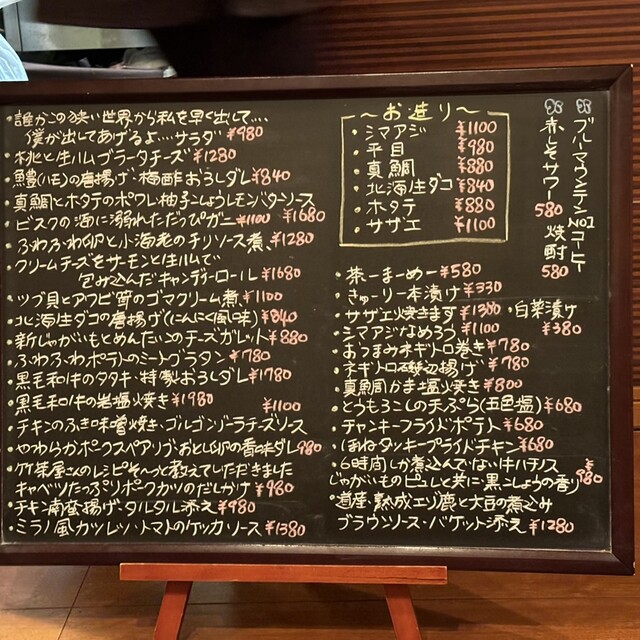 ・誰かこの狭い世界から私を早く出して....
僕が出してあげるよ...サラダ ¥980
・桃と生ハムブラータチーズ ¥1280
鱧(ハモ)の唐揚げ・梅酢おろしダレ ¥840
真鯛とホタテのポワレ柚子こしょうレモンバタソース ¥1680
・ビスクの海に溺れただっぴガニ ¥1100
・ふわふわ卵と小海老のチリソース煮、¥1280
・クリームチーズをサーモンと生ハムで
包み込んだキャンディーロール ¥1680
・ツブ貝とアワビ茸のゴマクリーム煮、¥1100
・北海生ダコの唐揚げ(にんにく風味) ¥840
・新じゃがいもとめんたいこのチーズガレット ¥880
・ふわふわポテトのミートグラタン ¥780
・黒毛和牛のタタキ・特製おろしダレ ¥1780
・黒毛和牛の岩塩焼き ¥1980
チキンのふき味噌焼き、ゴルゴンゾーラチーズソース ¥1100
・やわらかポークスペアリブおとし卵の香味ダレ 980
・竹茶屋さんのレシピそ〜っと教えていただきました
キャベツたっぷりポークカツのだしかけ ¥980
・チキン南蛮揚げ・タルタル添え ¥980
・ミラノ風カツレツ・トマトのケッカソース ¥1380
〜お造り〜
・シマアジ ¥1100
・平目 ¥980
・真鯛 ¥880
・北海生ダコ ¥840
・ホタテ ¥880
・サザエ ¥1100
ブルーマウンテンNo1コーヒー焼酎 580
赤しそサワー 580
・茶ーまーめー ¥580
・きゅーりー本漬け ¥330
・サザエ焼きます ¥1300
・白菜漬け ¥380
・シマアジなめろう ¥1100
・おつまみネギトロ巻き ¥780
・ネギトロ磯辺揚げ ¥780
・真鯛かま塩焼き ¥800
・とうもろこしの天ぷら(五色塩) ¥680
・チャンキーフライドポテト ¥680
・ほねダッキーフライドチキン ¥680
・6時間しか煮込んでない牛ハチノス
じゃがいものピュレと共に・黒こしょうの香り ¥980
・道産・熟成エゾ鹿と大豆の煮込み
ブラウンソース・バゲット添え ¥1280